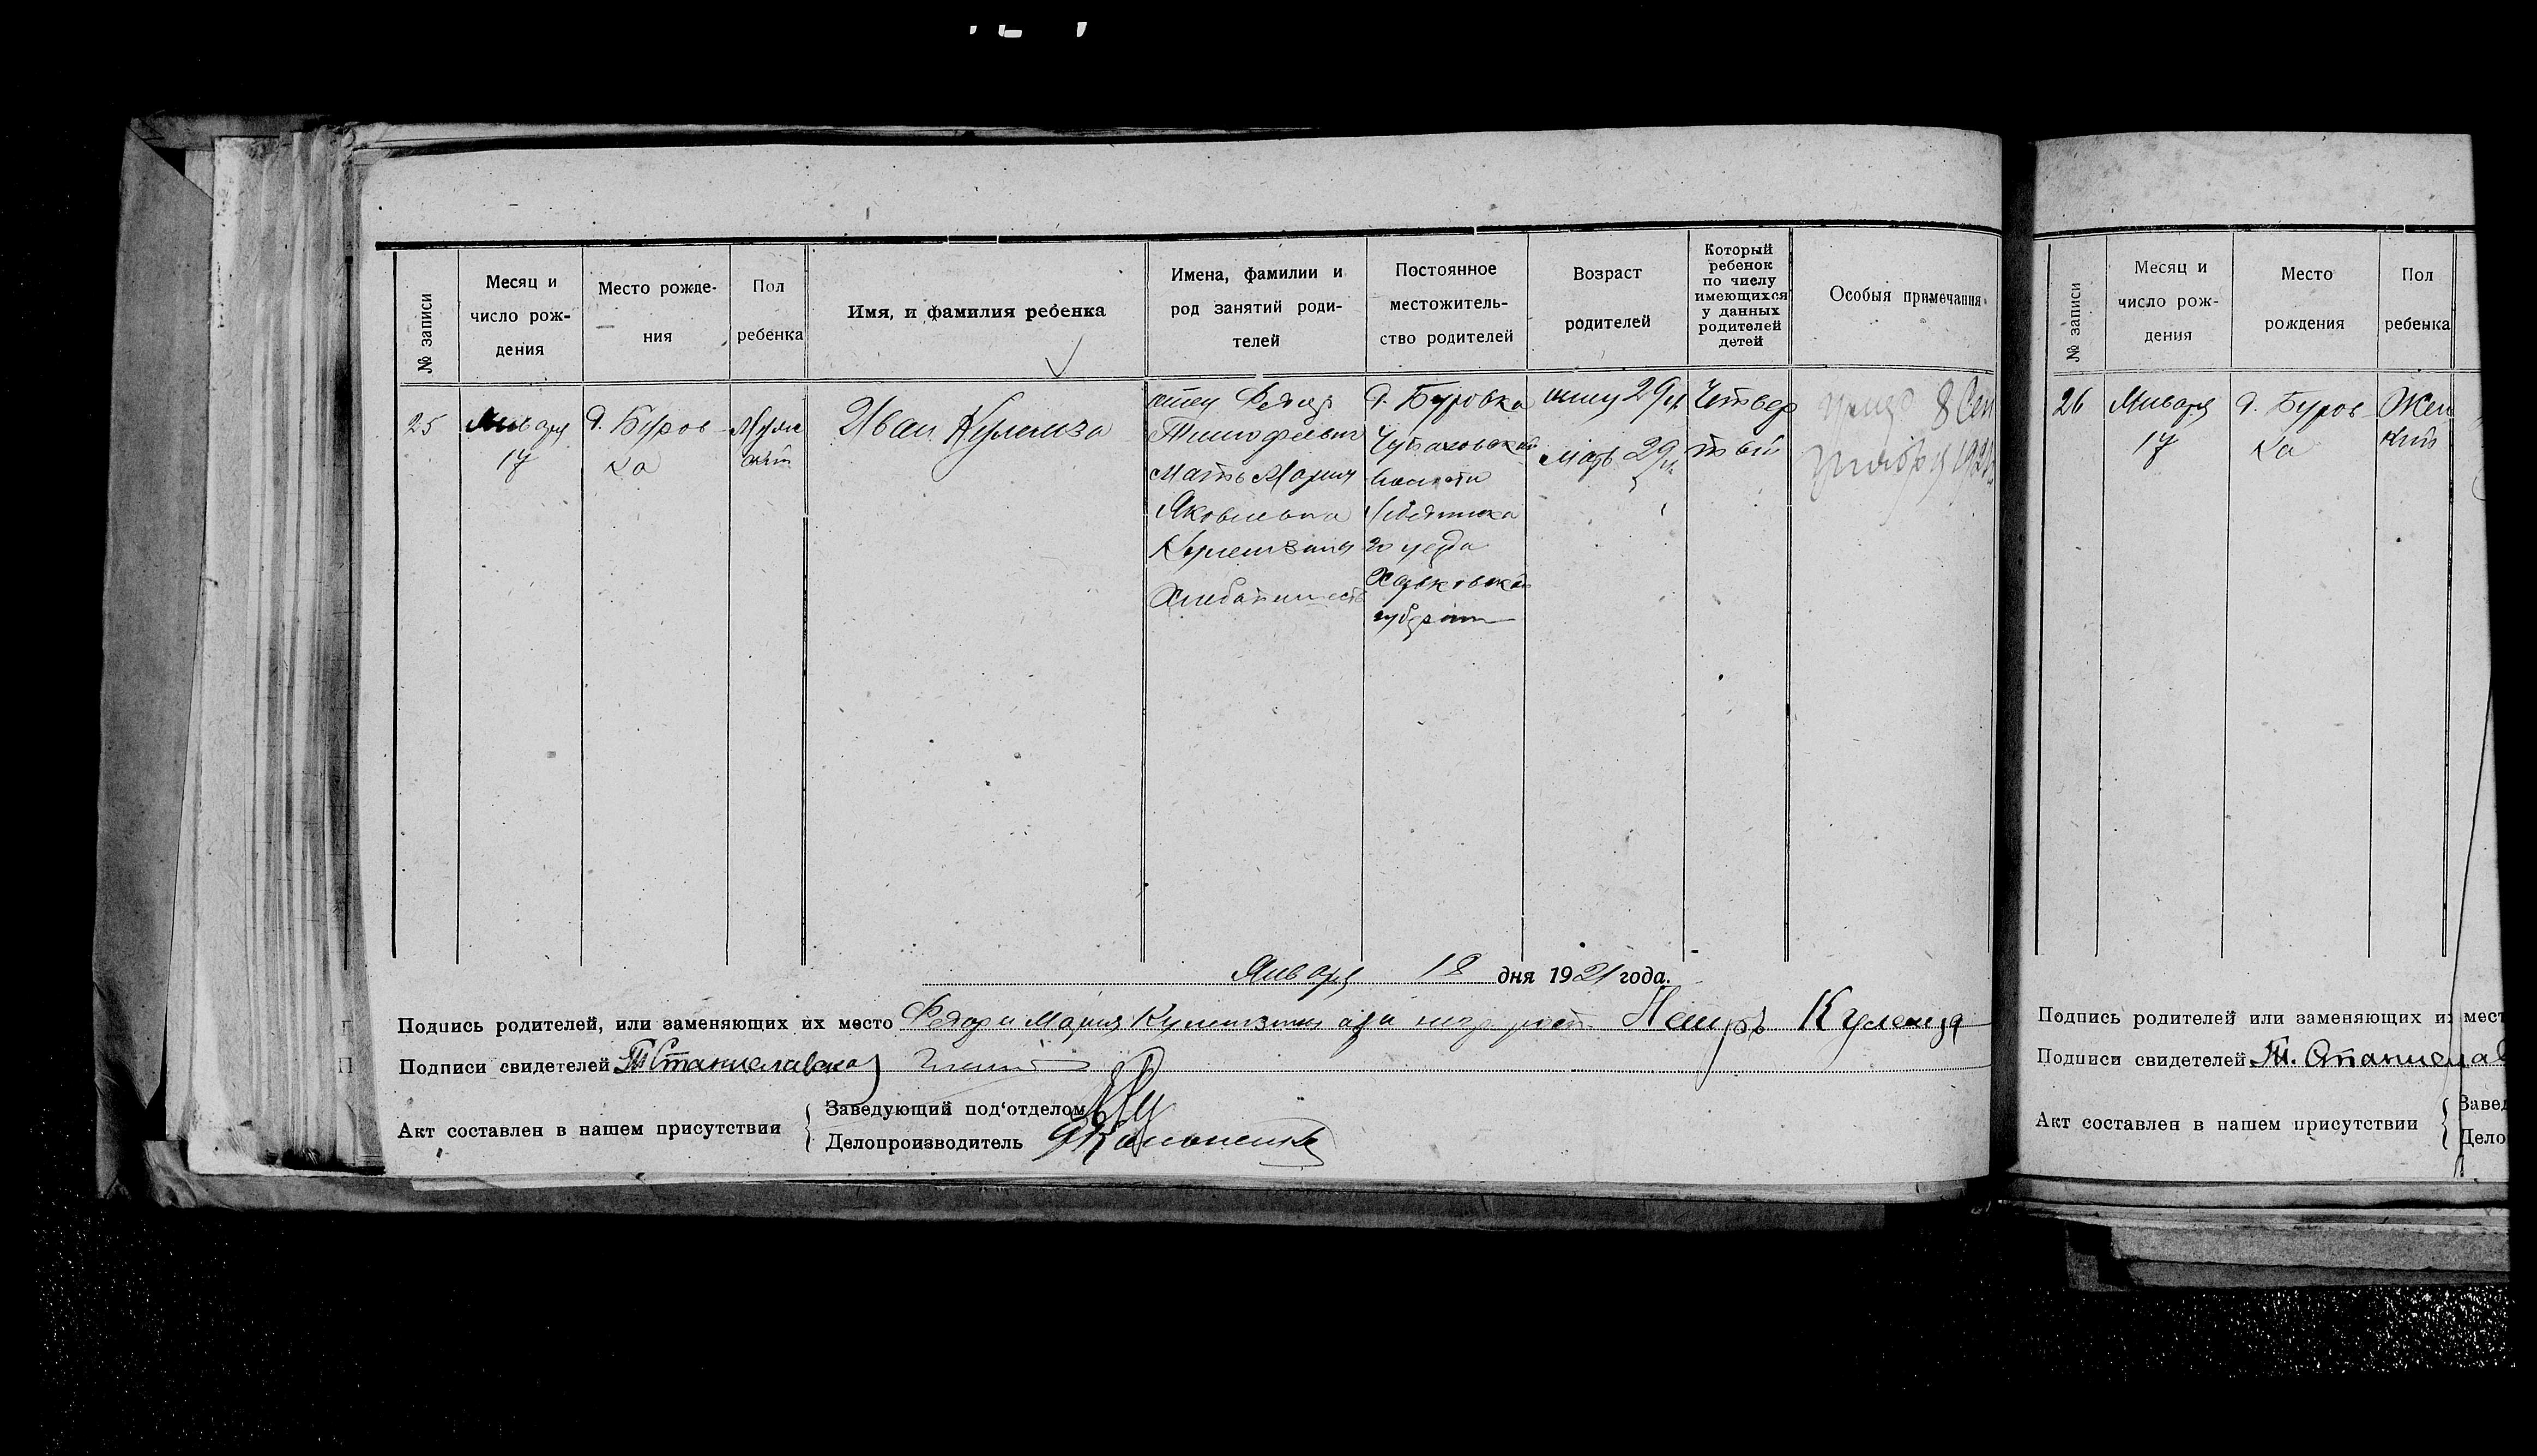 № записи
Месяц и
число рож-
дения
Место рожде-
ния
Пол
ребенка
Имя, и фамилия ребенка
Имена, фамилии и
род занятий роди-
телей
Постоянное
местожитель-
ство родителей
Возраст
родителей
Который
ребенок
по числу
имеющихся
у данных
родителей
детей
Особыя примечания
25
Января
17
д. Буров-
ка
Муж
ской
Иван Кулемза
отец Федор
Тимофеевич
Мать Мария
Яковлевна
Кулемзины
Хлебопашест
д. Буровка
Чупаховской
волости
го уезда
Харьковской
губернии
отцу 29 л.
мать 29 л.
Четвер
тый
8 Сен
Января 18 дня 1921 года.
Подпись родителей, или заменяющих их место Федор и Мария Кулемзины Петръ Кулемза
Подписи свидетелей
Акт составлен в нашем присутствии
Заведующий под'отделом
Делопроизводитель
№ записи
Месяц и
число рож-
дения
Место
рождения
Пол
ребенка
26
Января
17
д. Буров-
ка
Жен
кий
Подпись родителей или заменяющих их мест
Подписи свидетелей
Акт составлен в нашем присутствии
Завед
Дело